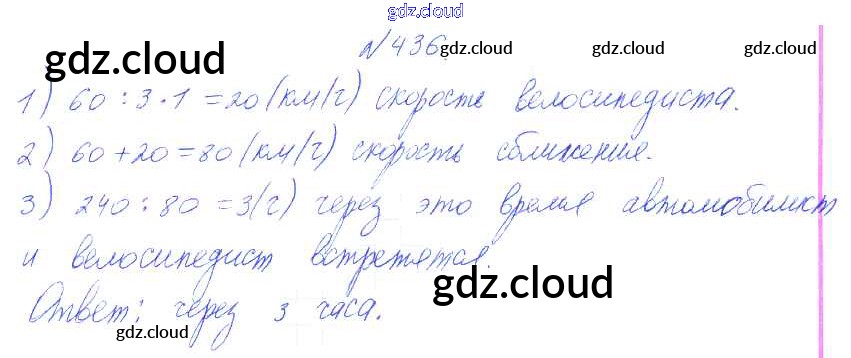 gdz.cloud
№436.
gdz.cloud gdz.cloud gdz.cloud gdz.cloud
1) 60 : 3 · 1 = 20 (км/ч) скорость велосипедиста.
2) 60 + 20 = 80 (км/ч) скорость сближения.
3) 240 : 80 = 3 (ч) через это время автомобилист
и велосипедист встретятся.
gdz.cloud gdz.cloud
Ответ: через 3 часа.
gdz.cloud gdz.cloud